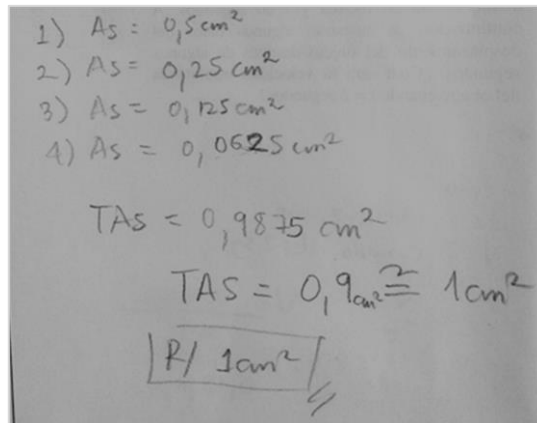 1) As = 0,5 cm²
2) As = 0,25 cm²
3) As = 0,125 cm²
4) As = 0,0625 cm²
TAs = 0,9875 cm²
TAS = 0,9 cm² ≅ 1 cm²
R/ 1 cm²